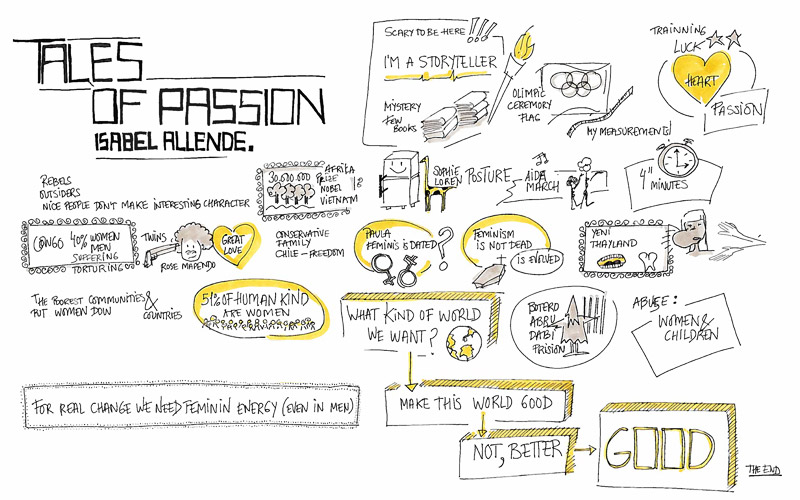 TALES
OF PASSION
ISABEL ALLENDE.
SCARY TO BE HERE!!!
I'M A STORYTELLER
MYSTERY
FEW
BOOKS
OLIMPIC
CEREMORY
FLAG
MY MEASUREMENT!
TRAINNING
LUCK
HEART
PASSION
REBELS
OUTSIDERS
NICE PEOPLE DON'T MAKE INTERESTING CHARACTER
30.000.000
AFRIKA
PRIZE
NOBEL
VIETNAM
SOPHIE
LOREN
POSTURE
AIDA
MARCH
4" MINUTES
CONGO
40% WOMEN
MEN
SUFFERING
TORTURING
TWINS
ROSE MAPENDO
GREAT
LOVE
CONSERVATIVE
FAMILY
CHILE - FREEDOM
PAULA
FEMINIS IS DATED
?
FEMINISM
IS NOT DEAD
IS EVOLVED
YENI
THAYLAND
THE POOREST COMMUNITIES
& COUNTRIES
PUT WOMEN DOW
51% OF HUMAN KIND
ARE WOMEN
WHAT KIND OF WORLD
WE WANT?
BOTERO
ABRU
DABI
PRISION
ABUSE:
WOMEN &
CHILDREN
FOR REAL CHANGE WE NEED FEMININ ENERGY (EVEN IN MEN)
MAKE THIS WORLD GOOD
NOT, BETTER
GOOD
THE END